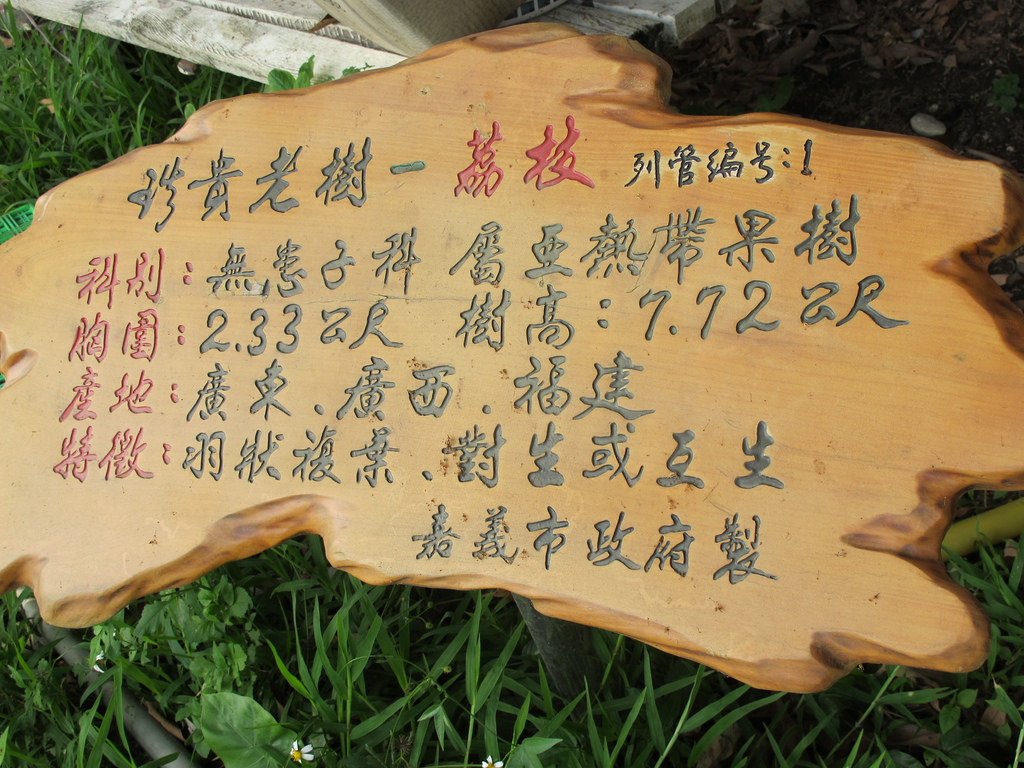 珍貴老樹－荔枝 列管編号:1
科別:無患子科 屬亞熱帶果樹
胸圍:2.33公尺 樹高:7.72公尺
產地:廣東、廣西、福建
特徵:羽狀複葉、對生或互生
嘉義市政府製